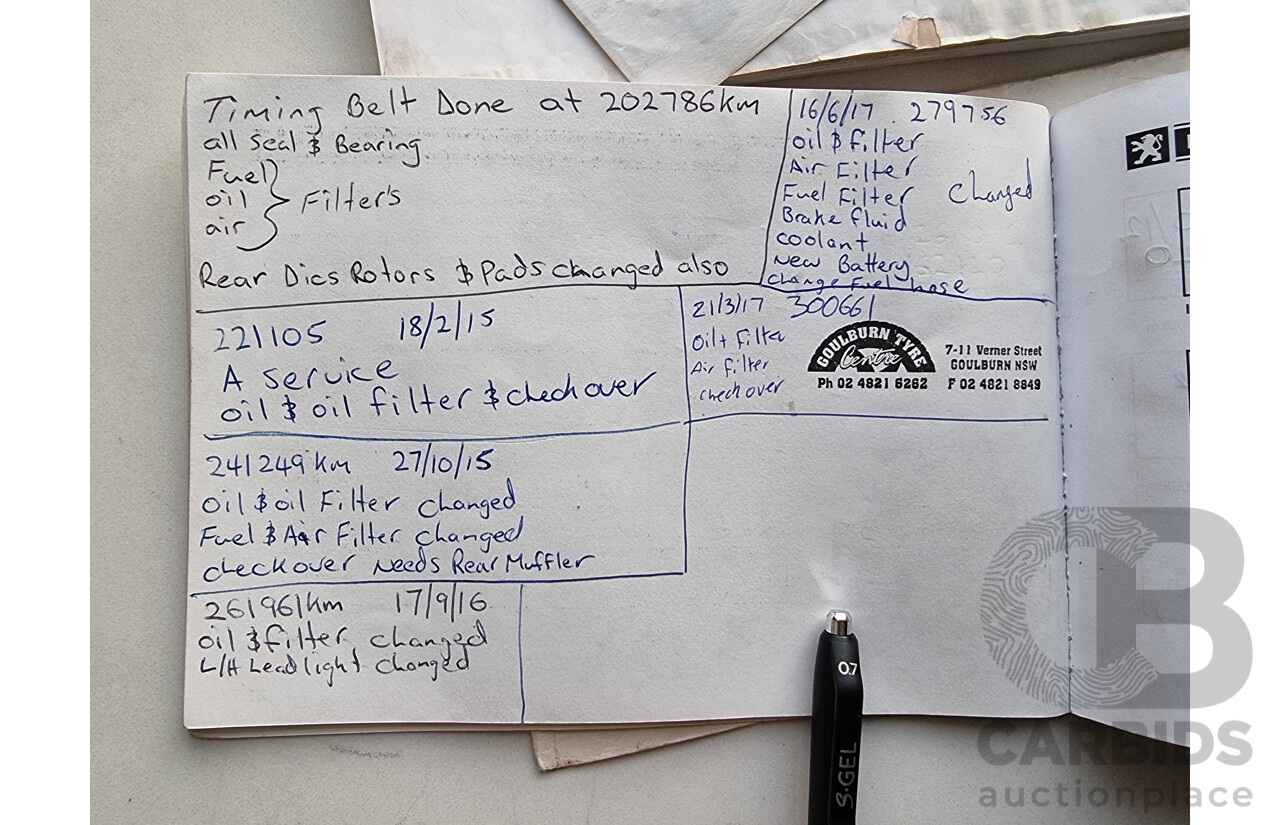 Timing Belt Done at 202786km
all seal & Bearing
Fuel
oil
air
Filter's
Rear Dics Rotors & Pads changed also
16/6/17 279756
oil & filter
Air Filter
Fuel Filter changed
Brake fluid
coolant
New Battery
change Fuel hose
221105 18/2/15
A service
oil & oil filter & check over
21/3/17 300661
Oil + Filter
Air filter
check over
GOULBURN TYRE
Centre
Ph 02 4821 6262
7-11 Verner Street
GOULBURN NSW
F 02 4821 8849
241249km 27/10/15
Oil & oil Filter changed
Fuel & Air Filter changed
check over Needs Rear Muffler
261961km 17/9/16
oil & filter changed
L/H Lead light changed
0.7
S·GEL
CARBIDS
auctionplace